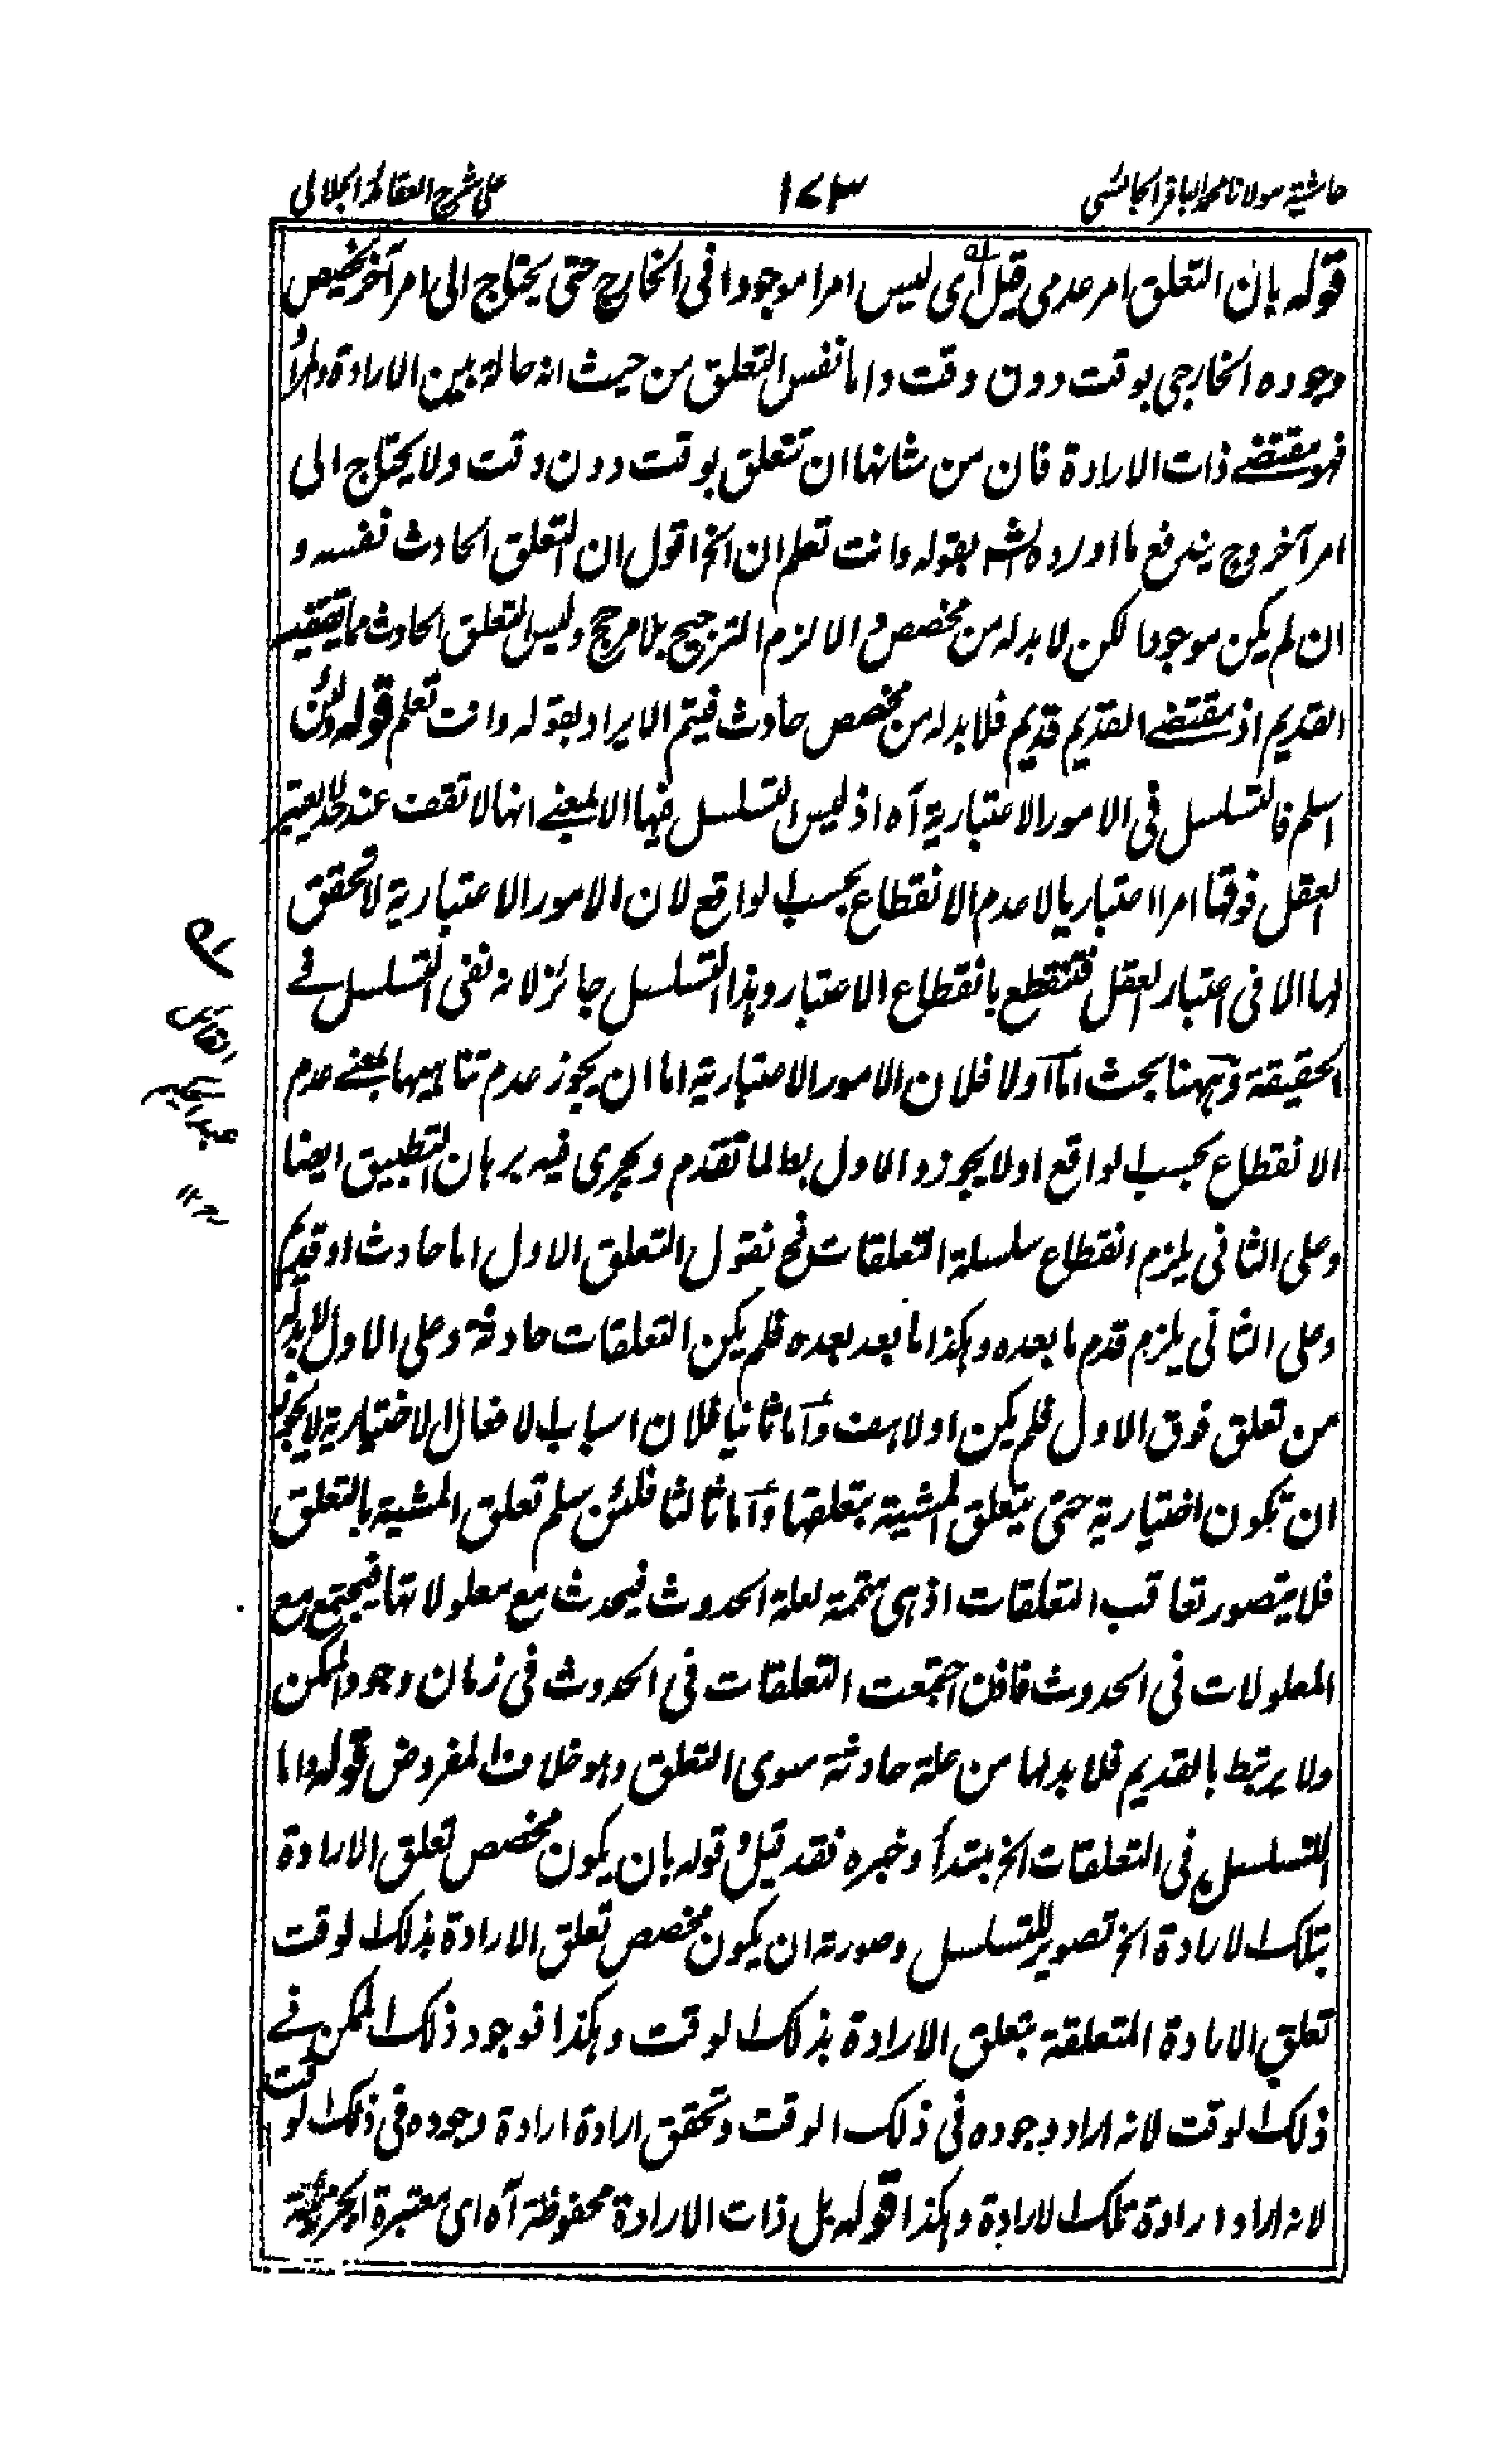 حاشية مولانا محمد الباقر الجائسى ١٧٣ على شرح العقائد الجلالى
قوله بان التعلق امر عدمى قيل اى ليس امرا موجودا فى الخارج حتى يحتاج الى امر آخر يخصص
وجوده الخارجى بوقت دون وقت واما نفس التعلق من حيث انه حالة بين الارادة والمراد
فهو مقتضے ذات الارادة فان من شانها ان تتعلق بوقت دون وقت ولا يحتاج الى
امر آخر وح يندفع ما اورده الش بقوله وانت تعلم ان الخ اقول ان التعلق الحادث نفسه و
ان لم يكن موجودا لكن لا بد له من مخصص والا لزم الترجيح بلا مرجح وليس التعلق الحادث مما يقتضيه
القديم اذ مقتضے القديم قديم فلا بد له من مخصص حادث فيتم الايراد بقوله وانت تعلم قوله ولئن
اسلم فالتسلسل فى الامور الاعتبارية آه اذ ليس التسلسل فيها الا بمعنے انها لا تقف عند حد لا يعتبر
العقل فوقها امرا اعتباريا لا عدم الانقطاع بحسب الواقع لان الامور الاعتبارية لا تحقق
لها الا فى اعتبار العقل فتنقطع بانقطاع الاعتبار وهذا التسلسل جائز لانه نفى التسلسل فے
الحقيقة وههنا بحث اما اولا فلان الامور الاعتبارية اما ان يجوز عدم تناهيها بمعنے عدم
الانقطاع بحسب الواقع اولا يجوز والاول بط لما تقدم ويجرى فيه برهان التطبيق ايضا
وعلى الثانى يلزم انقطاع سلسلة التعلقات فح نقول التعلق الاول اما حادث او قديم
وعلى الثانى يلزم قدم ما بعده وهكذا ما بعد بعده فلم يكن التعلقات حادثة وعلى الاول لا بد له
من تعلق فوق الاول فلم يكن اولا هف واما ثانيا فلان اسباب الافعال الاختيارية لا يجوز
ان تكون اختيارية حتى يتعلق المشية بتعلقها واما ثالثا فلئن سلم تعلق المشية بالتعلق
فلا يتصور تعاقب التعلقات اذ هى متممة لعلة الحدوث فيحدث مع معلولاتها فيجتمع مع
المعلولات فى الحدوث فاذن اجتمعت التعلقات فى الحدوث فى زمان وجود الممكن
ولا يرتبط بالقديم فلا بد لها من علة حادثة سوى التعلق وهو خلاف المفروض قوله واما
التسلسل فى التعلقات الخ مبتدأ وخبره فقد قيل و قوله بان يكون مخصص تعلق الارادة
بتلك الارادة الخ تصوير للتسلسل وصورته ان يكون مخصص تعلق الارادة بذلك الوقت
تعلق الارادة المتعلقة بتعلق الارادة بذلك الوقت وهكذا فوجود ذلك الممكن فے
ذلك الوقت لانه اراد وجوده فى ذلك الوقت وتحقق ارادة ارادة وجوده فى ذلك الوقت
لانه اراد ارادة تلك الارادة وهكذا قوله بل ذات الارادة محفوظة آه اى معتبرة
له
القائل
عبد الحكيم
١٢